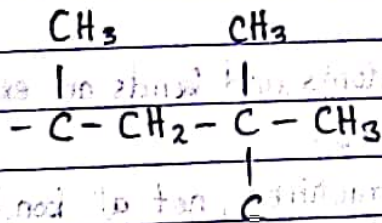 CH3 CH3
| |
- C - CH2 - C - CH3
|
C